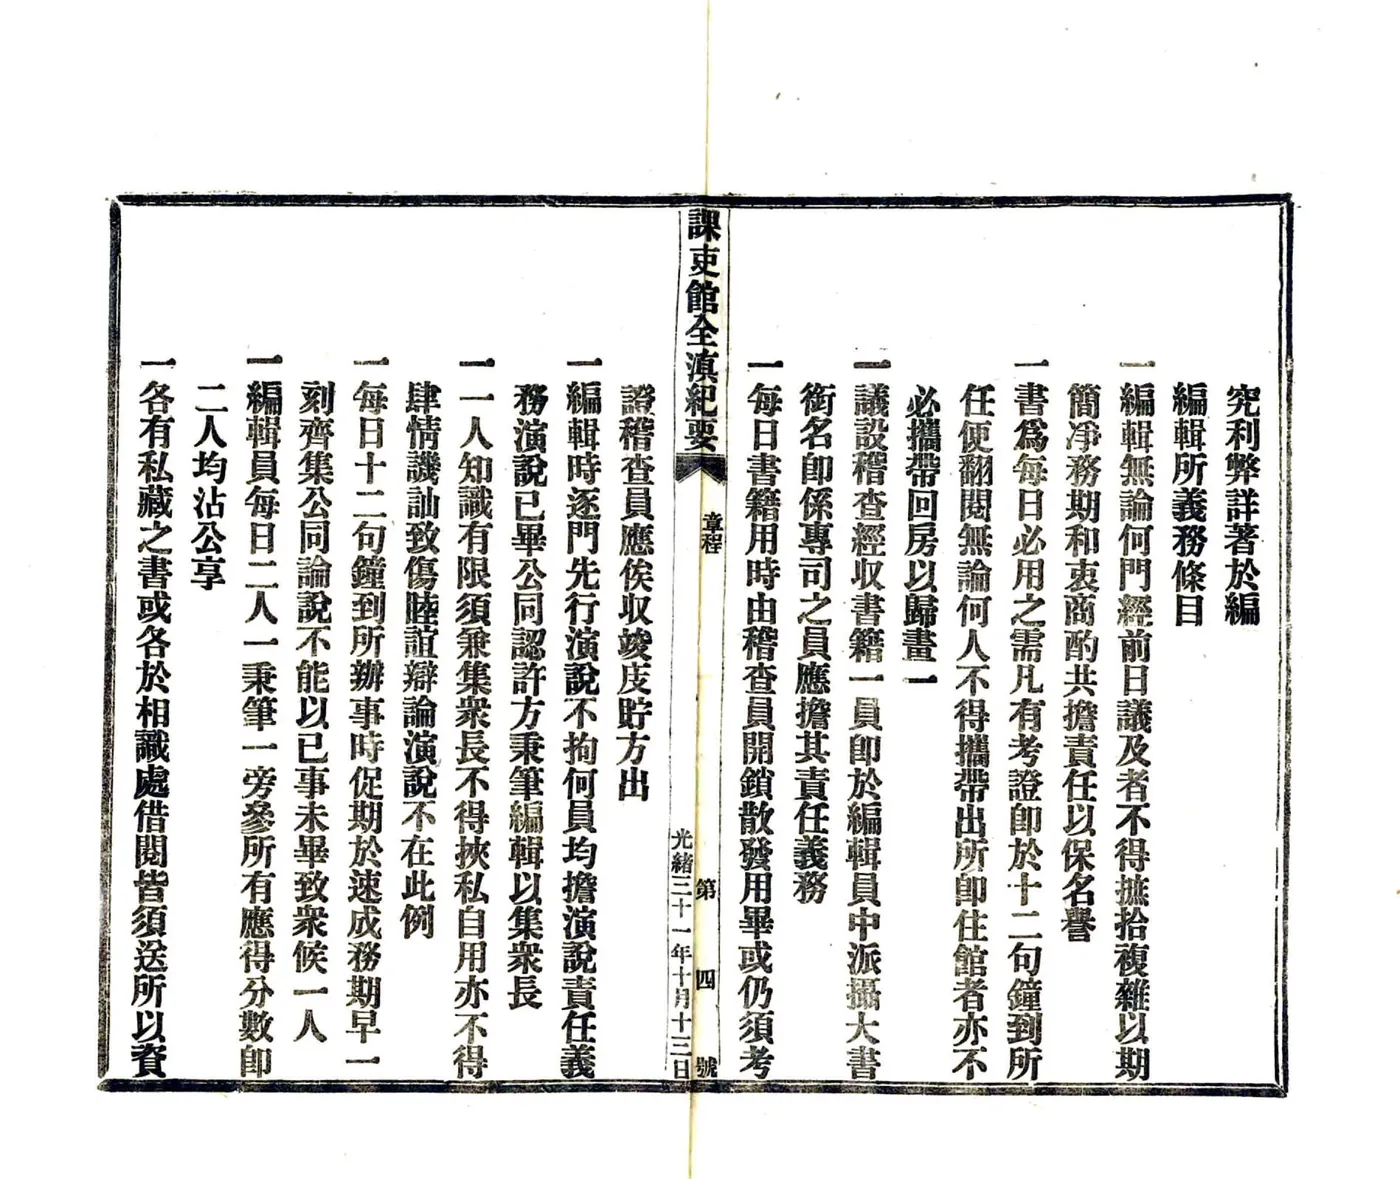 究利弊詳著於編
編輯所義務條目
一編輯無論何門經前日議及者不得摭拾複雜以期
簡淨務期和衷商酌共擔責任以保名譽
一書爲每日必用之需凡有考證即於十二句鐘到所
任便翻閱無論何人不得攜帶出所即住館者亦不
必攜帶回房以歸畫一
一議設稽查經收書籍一員即於編輯員中派攝大書
銜名即係專司之員應擔其責任義務
一每日書籍用時由稽查員開鎖散發用畢或仍須考
課吏館全滇紀要
章程
第四號
光緒三十一年十月十三日
證稽查員應俟収竣庋貯方出
一編輯時逐門先行演說不拘何員均擔演說責任義
務演說已畢公同認許方秉筆編輯以集衆長
一一人知識有限須兼集衆長不得挾私自用亦不得
肆情譏訕致傷睦誼辯論演說不在此例
一每日十二句鐘到所辦事時促期於速成務期早一
刻齊集公同論說不能以已事未畢致衆候一人
一編輯員每日二人一秉筆一旁參所有應得分數即
二人均沾公享
一各有私藏之書或各於相識處借閱皆須送所以資